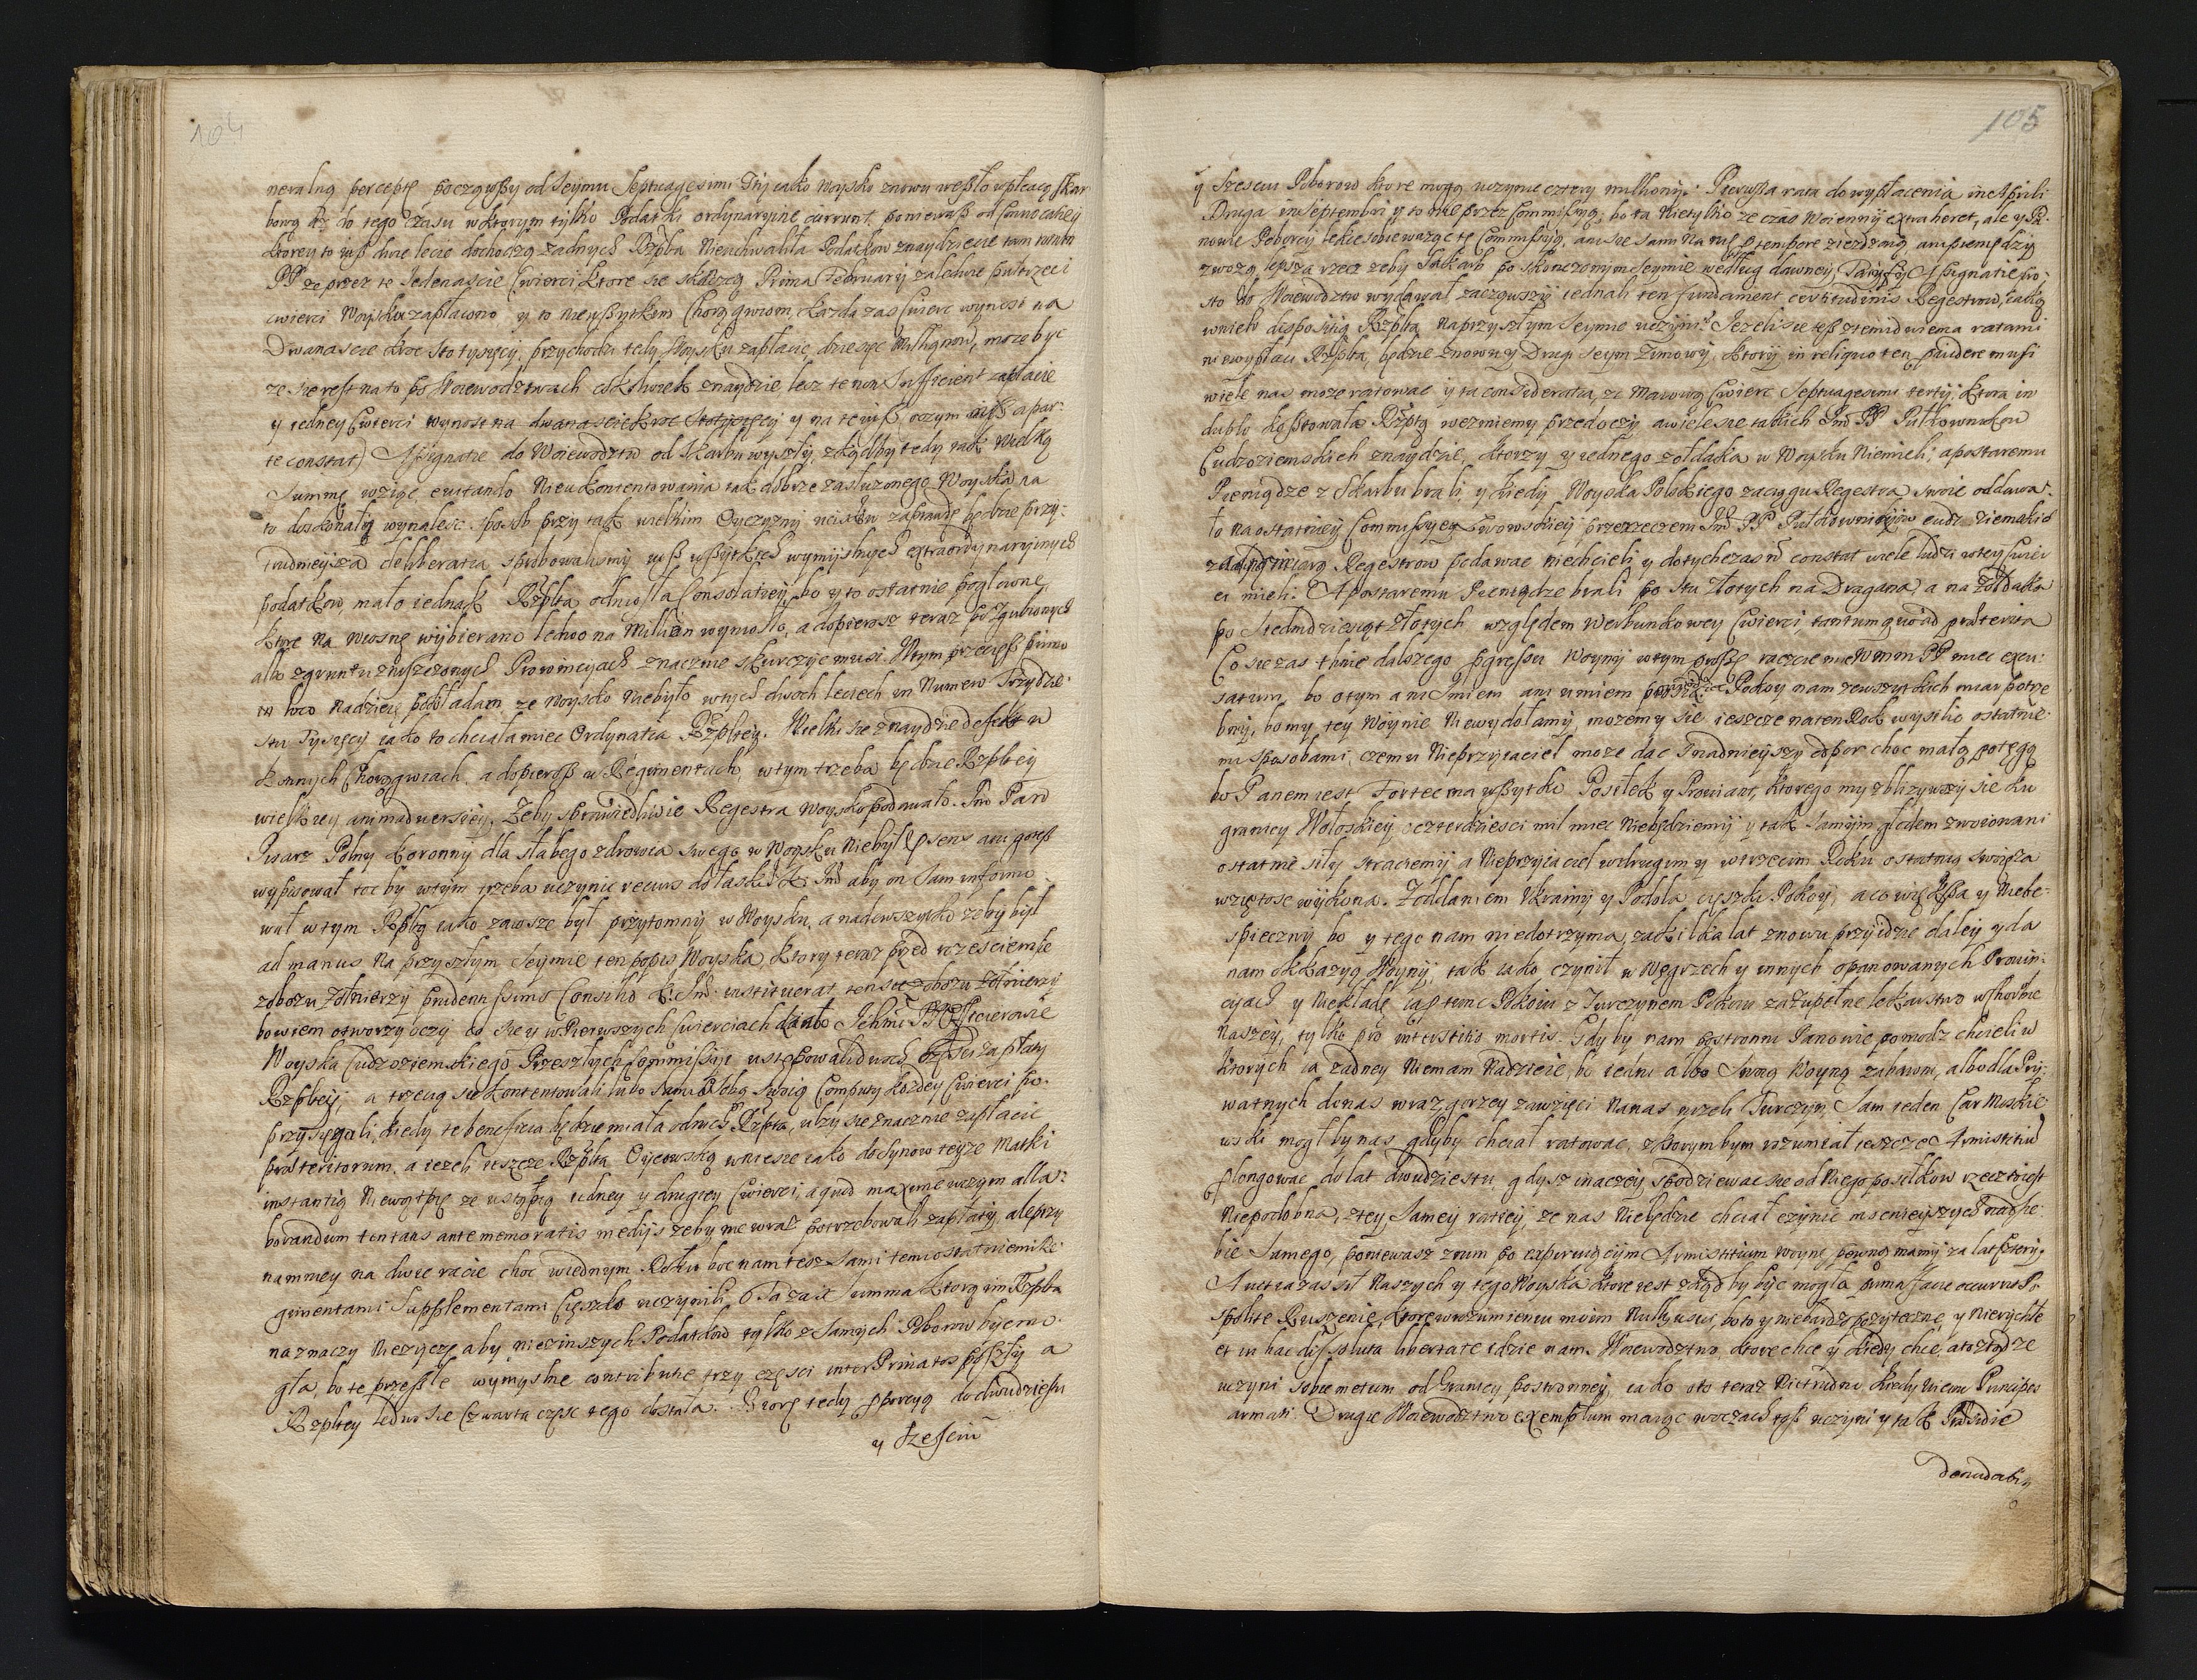 104
neralną perceptę począwszy od Seymu Septuagesimi Tÿ iako woysko znowu weszło w płacą skar
bową do tego czasu w ktorym tylko Podatki ordynaryine currunt, poniewasz od
ktorey to iusz dwie lecie dochodzą zadnych Rzplta Nieuchwaliła Podatkow znaydziecie tam
PP ze przez te Jedenascie Cwierci ktore sie skączą Prima February zaledwie puł trzeci
cwierci Woysku zapłacono y to niewszytkim Chorągwiom, kazda zas Cwierc wynosi na
Dwanascie kroc sto tysięcy, przychodzi tedy Woysku zapłacic dziesięc Millionow, moze byc
ze sie reszt na to po Woiewodztwach cokolwiek znaydzie lecz te non sufficient zapłacie
y iedney Cwierci wynosi na dwanascie kroc stotysięcy y na te iusz
te constat) Assignatie do Woiewodztw od Skarbu wyszły, zkądby tedy tak wielką
Summę wziąc evitando Nieukontentowania tak dobrze zasłuzonego Woyska na
to doskonały wynalesc sposob przy tak wielkim Oyczyzny ucisku zaprawdę będzie przy
trudnieysza deliberatia, sprobowalismy iusz wszytkich wymyslnych extraordynaryinych
podatkow, mało iednak Rzplta odniosła Consolatiey, bo y to ostatnie pogłowne
ktore na wiosnę wybierano ledwo na Million wyniosło, a dopierosz teraz po zgubionych
albo z gruntu zniszczonych Prowincyach znacznie skurczyc musi. W tym przeciesz primo
in loco Nadzieię pokładam ze Woysko Niebyło w tych dwoch leciech in Numero Trzydzie
stu Tysięcy iako to chciała miec Ordynatia Rzpltey. Wielki sie znaydzie defekt w
konnych Chorągwiach, a dopierosz w Regimentach, w tym trzeba będzie Rzpltey
wielkiey animadversiey, Zeby sprawiedliwie Regestra Woysko podawało. Jmć Pan
Pisarz Polny Koronny dla słabego zdrowia swego w Woysku Niebył Praesens ani go tesz
wypisował toc by w tym trzeba uczynic recurs do łaski Jmć aby on sam informo
wał w tym Rzpltą iako zawsze był przytomny w Woysku, a nadewszytko zeby był
ad manus na przyszłym Seymie ten popis Woyska, ktory teraz przed rozesciem sie
z obozu Zołnierzy prudentissimo Consilio instituerat, ten
bowiem otworzy oczy co sie y w Pierwszych Cwierciach działo Ichmć PP Officierowie
Woyska Cudzoziemskiego Przeszłych Commissyi ustępowali dwoch części zapłaty
Rzpltey, a trzecią sie kontentowali lubo sami Osobą swoią Computy kozdey Cwierci po
przysięgali, kiedy te beneficia będzie miała odnich Rzplta, ulzy sie znacznie zapłacie
praeteritorum, a iezeli ieszcze Rzplta Oycowską wniesie iako do Synow teyze Matki
instantią Niewątpię ze ustąpią iedney y drugiey Cwierci, a quod maxime w czym alla
borandum tentans ante memoratis medijs zeby nie wraz potrzebowali zapłaty ale przy
namniey na dwie racie choc w iednym Roku boc nam tesz sami temi ostatniemi Re
gimentami Supplementami Cięszko uczynili. Ta zaś Summa ktorą im Rzplta
naznaczy Nieżyczę aby niezinszych Podatkow tylko z samych Poborow byc mo
gła, bo te przeszłe wymyslne contributie trzy części inter Privatos poszły a
Rzpltey ledwo sie Czwarta częsc tego dostała. Biorę tedy proporcyą do dwudziestu
y szesciu
105
y Szesciu Poborow ktore mogą uczynic cztery milliony. Pierwsza rata do wypłacenia in Aprili
Druga in Septembri y to nie przez Commissyą, bo ta nietylko ze czas Woienny extraheret, ale y Pa
nowie Poborcy lekce sobie wazą te Commissyą, ani sie sami na nię pro tempore ziezdzaią ani pieniędzy
zwozą, lepsza rzecz zeby Skarb po skonczonym Seymie według dawney Taryffy Assignatie pro
sto do Woiewodztw wydawał zacząwszy iednak ten fundament certitudinis Regestrow, iaką
w nich dispositią Rzplta na przyszłym Seymie uczyni. Jezeli sie tesz temi dwiema ratami
niewypłaci Rzplta, będzie znowu y Drugi Seym Zimowy, ktory in reliquo ten providere musi
wiele nas moze ratowac y ta consideratia, ze Marcową Cwierc Septuagesimi tertij, ktora in
duplo kosztowała Rzpltą weźmiemy przed oczy a wiele sie takich Jmć PP Pułkownikow
Cudzoziemskich znaydzie, ktorzy y iednego zołdaka w Woysku Niemieli; a postaremu
Pieniądze z Skarbu brali, y kiedy Woyska Polskiego zaciągu Regestra swoie oddawa
ło na ostatniey Commissyey Lwowskiey przerzeczeni Jmć PP Pułkownicy cudzoziemskich
zaciągow Regestrow podawac niechcieli, y dotychczas constat wiele ludzi w tey Cwier
ci mieli. A postaremu Pieniądze brali po stu złotych na Dragana, a na zołdaka
po Siedmdziesiąt złotych względem Werbunkowey Cwierci, tantum quoad praeterita
Co sie zas tknie dalszego progressu Woyny w tym proszę raczcie mie WMM PP miec excu
satum, bo o tym ani smiem ani umiem Pokoy nam zewszytkich miar potrze
bny, bo my tey Woynie Niewydołamy, mozemy sie ieszcze na ten Rok wysilic ostatnie
mi sposobami, czemu Nieprzyiaciel moze dac Snadnieyszy odpor choc małą potęgą
bo Panem iest Fortec ma wszytko Posiłek y Prowiant, ktorego my zblizywszy sie ku
granicy Wołoskiey o czterdziesci mil miec Niebędziemy y tak samym głodem zwoiowani
ostatnie siły straciemy a Nieprzyiaciel w drugim y w trzecim Roku ostatnią swoię za
wziętosc wykona. Z oddaniem Ukrainy y Podola cięszki Pokoy, a co większa y Niebe
spieczny bo y tego nam niedotrzyma, za kilka lat znowu przyidzie daley y da
nam okkazyą Woyny, tak iako czynił w Węgrzech y innych opanowanych Prowin
cyach y Niekładę ia tunc Pokoiu z Turczynem Pokoiu za zupełne lekarstwo w chorobie
naszey, tylko pro interstitio mortis. Gdyby nam postronni Panowie pomodz chcieli w
ktorych ia zadney Niemam Nadzieie, bo iedni albo swoią Woyną zabawni, albo dla Pry
watnych do nas wraz gorzey zawzięci na nas nizeli Turczyn, Sam ieden Car Moskie
wski mogł by nas gdyby chciał ratowac, z ktorym bym rozumiał ieszcze Armistitiu
prolongowac do lat dwudziestu, gdysz inaczey spodziewac sie od Niego posiłkow rzecz iest
Niepodobna, z tey samey ratiey ze nas Niebędzie chciał czynic mocnieyszych nad sie
bie samego, poniewasz z nim po expirującym Armistitium woynę pewną mamy za lat cztery,
Auctia zas sił Naszych y tego Woyska ktore iest zkąd by byc mogła prima facie occurrit Po
spolite Ruszenie, ktore w rozumieniu moim Nullius usus, bo to y niebardzo pozyteczne, y Nierychłe
et in hac dissoluta libertate idzie nam. Woiewodztwo, ktore chce y kiedy chce, a to ztąd ze
uczyni sobie metum od Granicy postronney, iako oto teraz Nietrudno kiedy vicini Principes
armati. Drugie Woiewodztwo exemplum maiąc w oczach tosz uczyni y tak Prosidie
denudabi